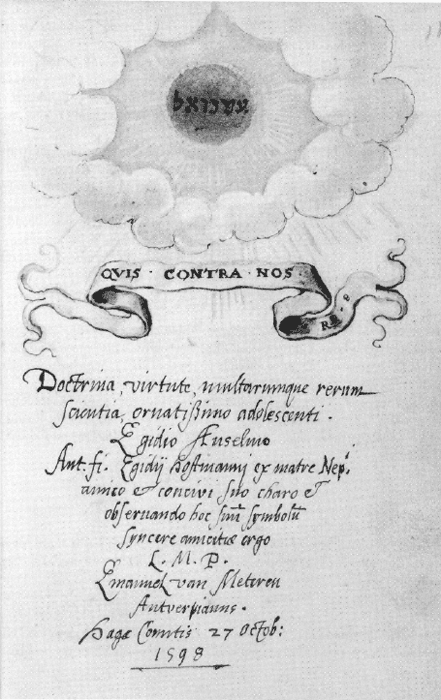 עמנואל
QVIS · CONTRA · NOS
RO · 8
Doctrina, virtute, multarumque rerum
scientia, ornatißimo adolescenti.
Egidio Anselmo
Ant. fi. Egidij Hoftmannj ex matre Nep.
amico & concivi suo charo &
observando hoc suū symbolū
syncere amicitiæ ergo
L. M. P.
Emanuel van Meteren
Antverpianus.
Hagæ Comitis 27 Octob:
1598